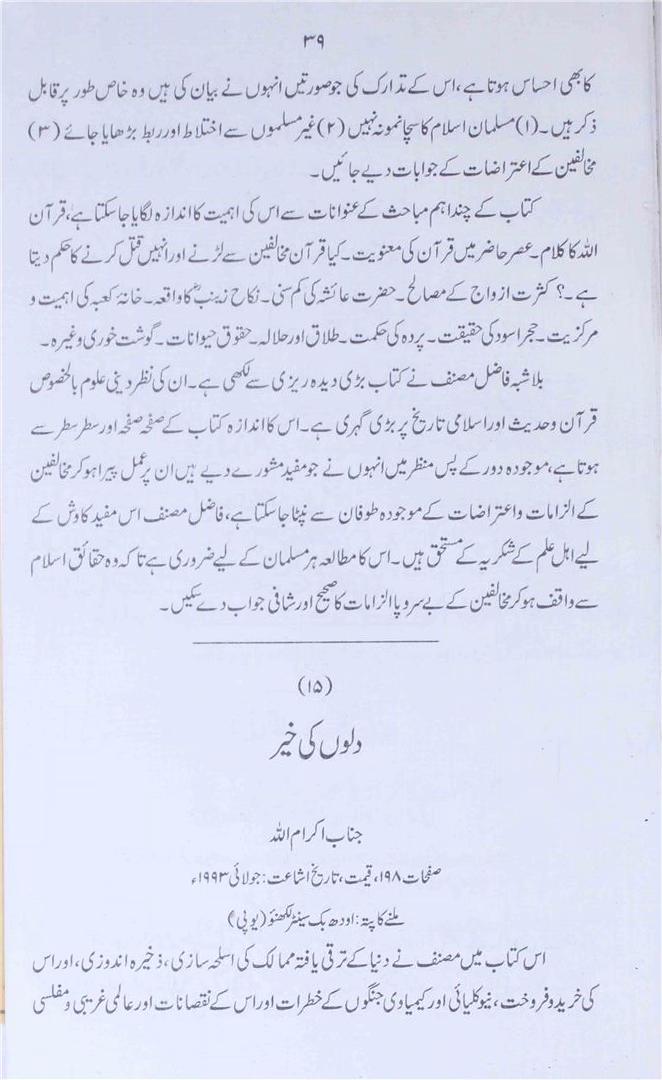 ۳۹
کا بھی احساس ہوتا ہے، اس کے تدارک کی جو صورتیں انہوں نے بیان کی ہیں وہ خاص طور پر قابل
ذکر ہیں۔ (۱) مسلمان اسلام کا سچا نمونہ نہیں (۲) غیر مسلموں سے اختلاط اور ربط بڑھایا جائے (۳)
مخالفین کے اعتراضات کے جوابات دیے جائیں۔
کتاب کے چند اہم مباحث کے عنوانات سے اس کی اہمیت کا اندازہ لگایا جا سکتا ہے، قرآن
اللہ کا کلام۔ عصر حاضر میں قرآن کی معنویت۔ کیا قرآن مخالفین سے لڑنے اور انہیں قتل کرنے کا حکم دیتا
ہے۔؟ کثرت ازواج کے مصالح۔ حضرت عائشہ کی کم سنی۔ نکاح زینبؓ کا واقعہ۔ خانۂ کعبہ کی اہمیت و
مرکزیت۔ حجر اسود کی حقیقت۔ پردہ کی حکمت۔ طلاق اور حلالہ۔ حقوق حیوانات۔ گوشت خوری وغیرہ۔
بلا شبہ فاضل مصنف نے کتاب بڑی دیدہ ریزی سے لکھی ہے۔ ان کی نظر دینی علوم بالخصوص
قرآن وحدیث اور اسلامی تاریخ پر بڑی گہری ہے۔ اس کا اندازہ کتاب کے صفحہ صفحہ اور سطر سطر سے
ہوتا ہے، موجودہ دور کے پس منظر میں انہوں نے جو مفید مشورے دیے ہیں ان پر عمل پیرا ہو کر مخالفین
کے الزامات و اعتراضات کے موجودہ طوفان سے نپٹا جا سکتا ہے، فاضل مصنف اس مفید کاوش کے
لیے اہل علم کے شکریہ کے مستحق ہیں۔ اس کا مطالعہ ہر مسلمان کے لیے ضروری ہے تا کہ وہ حقائق اسلام
سے واقف ہو کر مخالفین کے بے سر و پا الزامات کا صحیح اور شافی جواب دے سکیں۔
(۱۵)
دلوں کی خیر
جناب اکرام اللہ
صفحات ۱۹۸، قیمت، تاریخ اشاعت: جولائی ۱۹۹۳ء
ملنے کا پتہ: اودھ بک سینٹر لکھنؤ (یوپی)
اس کتاب میں مصنف نے دنیا کے ترقی یافتہ ممالک کی اسلحہ سازی، ذخیرہ اندوزی، اور اس
کی خرید و فروخت، نیوکلیائی اور کیمیاوی جنگوں کے خطرات اور اس کے نقصانات اور عالمی غریبی و مفلسی